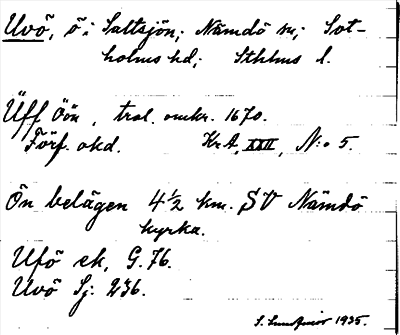 Uvö, ö i Saltsjön; Nämdö sn; Sot-
holms hd; Sthlms l.
Üff Öön, trol. omkr. 1670.
Förf. okd. Kr.A, XXII, N:o 5.
Ön belägen 4½ km. SV Nämdö
kyrka.
Ufö ek, G. 76.
Uvö Sj: 236.
1935.